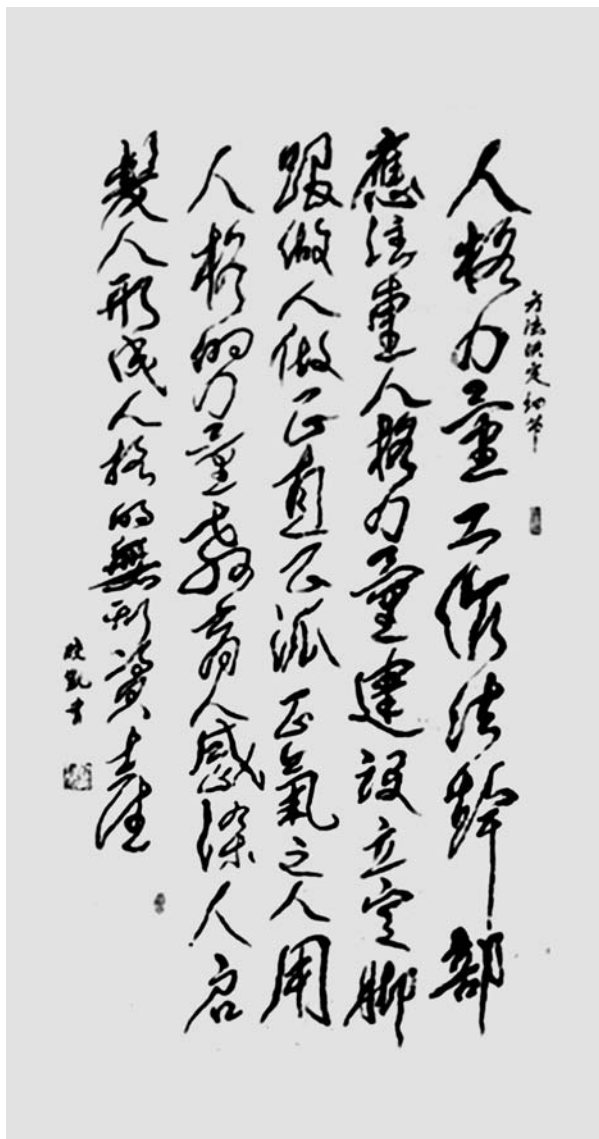 方法決定細節
人格力量工作法幹部
應注重人格力量建設立定脚
跟做人做正直正派正氣之人用
人格的力量教育人感染人啓
發人形成人格的無形資產
曉凱書